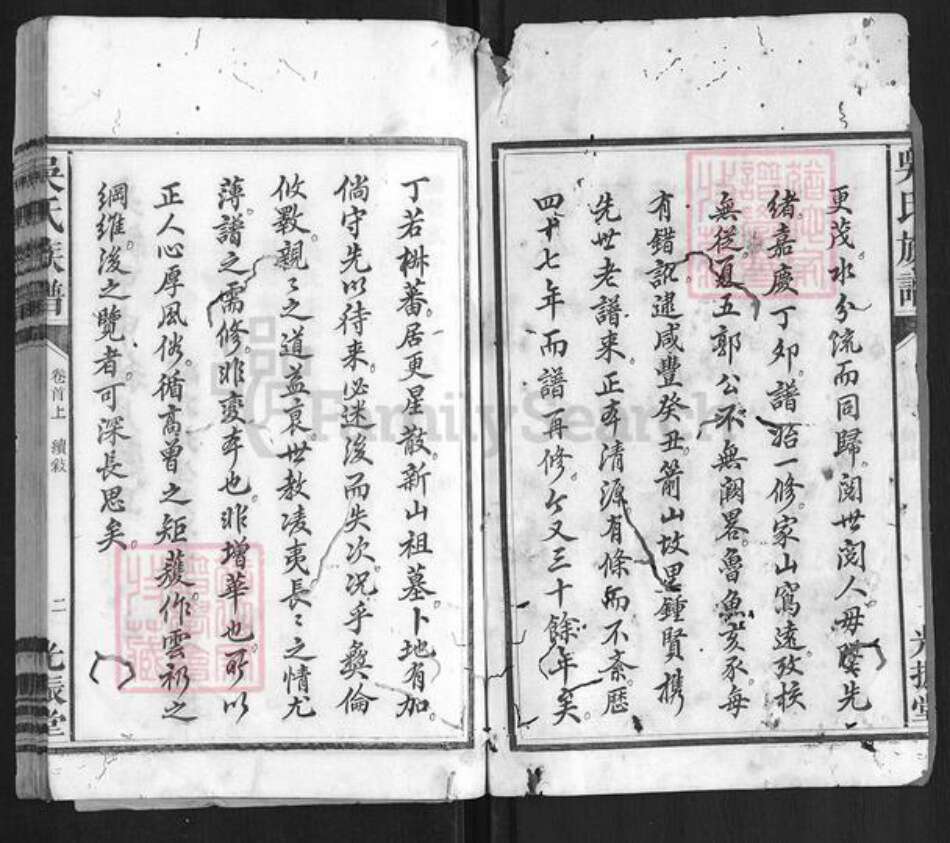 更茂。水分流而同歸。閱世閱人毋墜先
緒。嘉慶丁夘譜始一修。家山寫遠。攷核
無從。通五郭公不無闕畧。魯魚亥豕。每
有錯訛。逮咸豐癸丑。箭山故里鍾賢携
先世老譜来。正本清源有條而不紊。歷
四十七年而譜再修。今又三十餘年矣。
丁若椒蕃。居更星散。新山祖墓。卜地有加。
倘守先以待来。必迷後而失次。况乎彝倫
攸斁。親親之道益衰。世教凌夷。長長之情尤
薄。譜之需修。非变本也。非增華也。所以
正人心厚風俗。循高曾之矩蠖。作雲礽之
綱維。後之覽者。可深長思矣。
吳氏族譜
卷首上 續敍
二
光振堂
FamilySearch